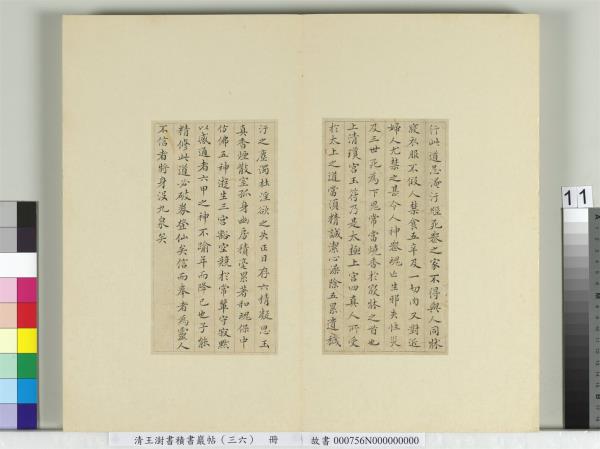 行此道忌淹汙經死喪之家不得與人同牀
寢衣服不假人禁食五辛及一切肉又對近
婦人尤禁之甚令人神喪魂亡生邪失性災
及三世死為下鬼常當燒香於寢牀之首也
上清瓊宮玉符乃是太極上宮四真人所受
於太上之道當須精誠潔心澡除五累遺穢
汙之塵濁杜淫欲之失正目存六精凝思玉
真香煙散室孤身幽房積毫累著和魂保中
仿佛五神遊生三宮豁空競於常輩守寂默
以感通者六甲之神不踰年而降己也子能
精修此道必破券登仙矣信而奉者為靈人
不信者將身沒九泉矣
11
清王澍書積書巖帖(三六) 冊 故書 000756N000000000